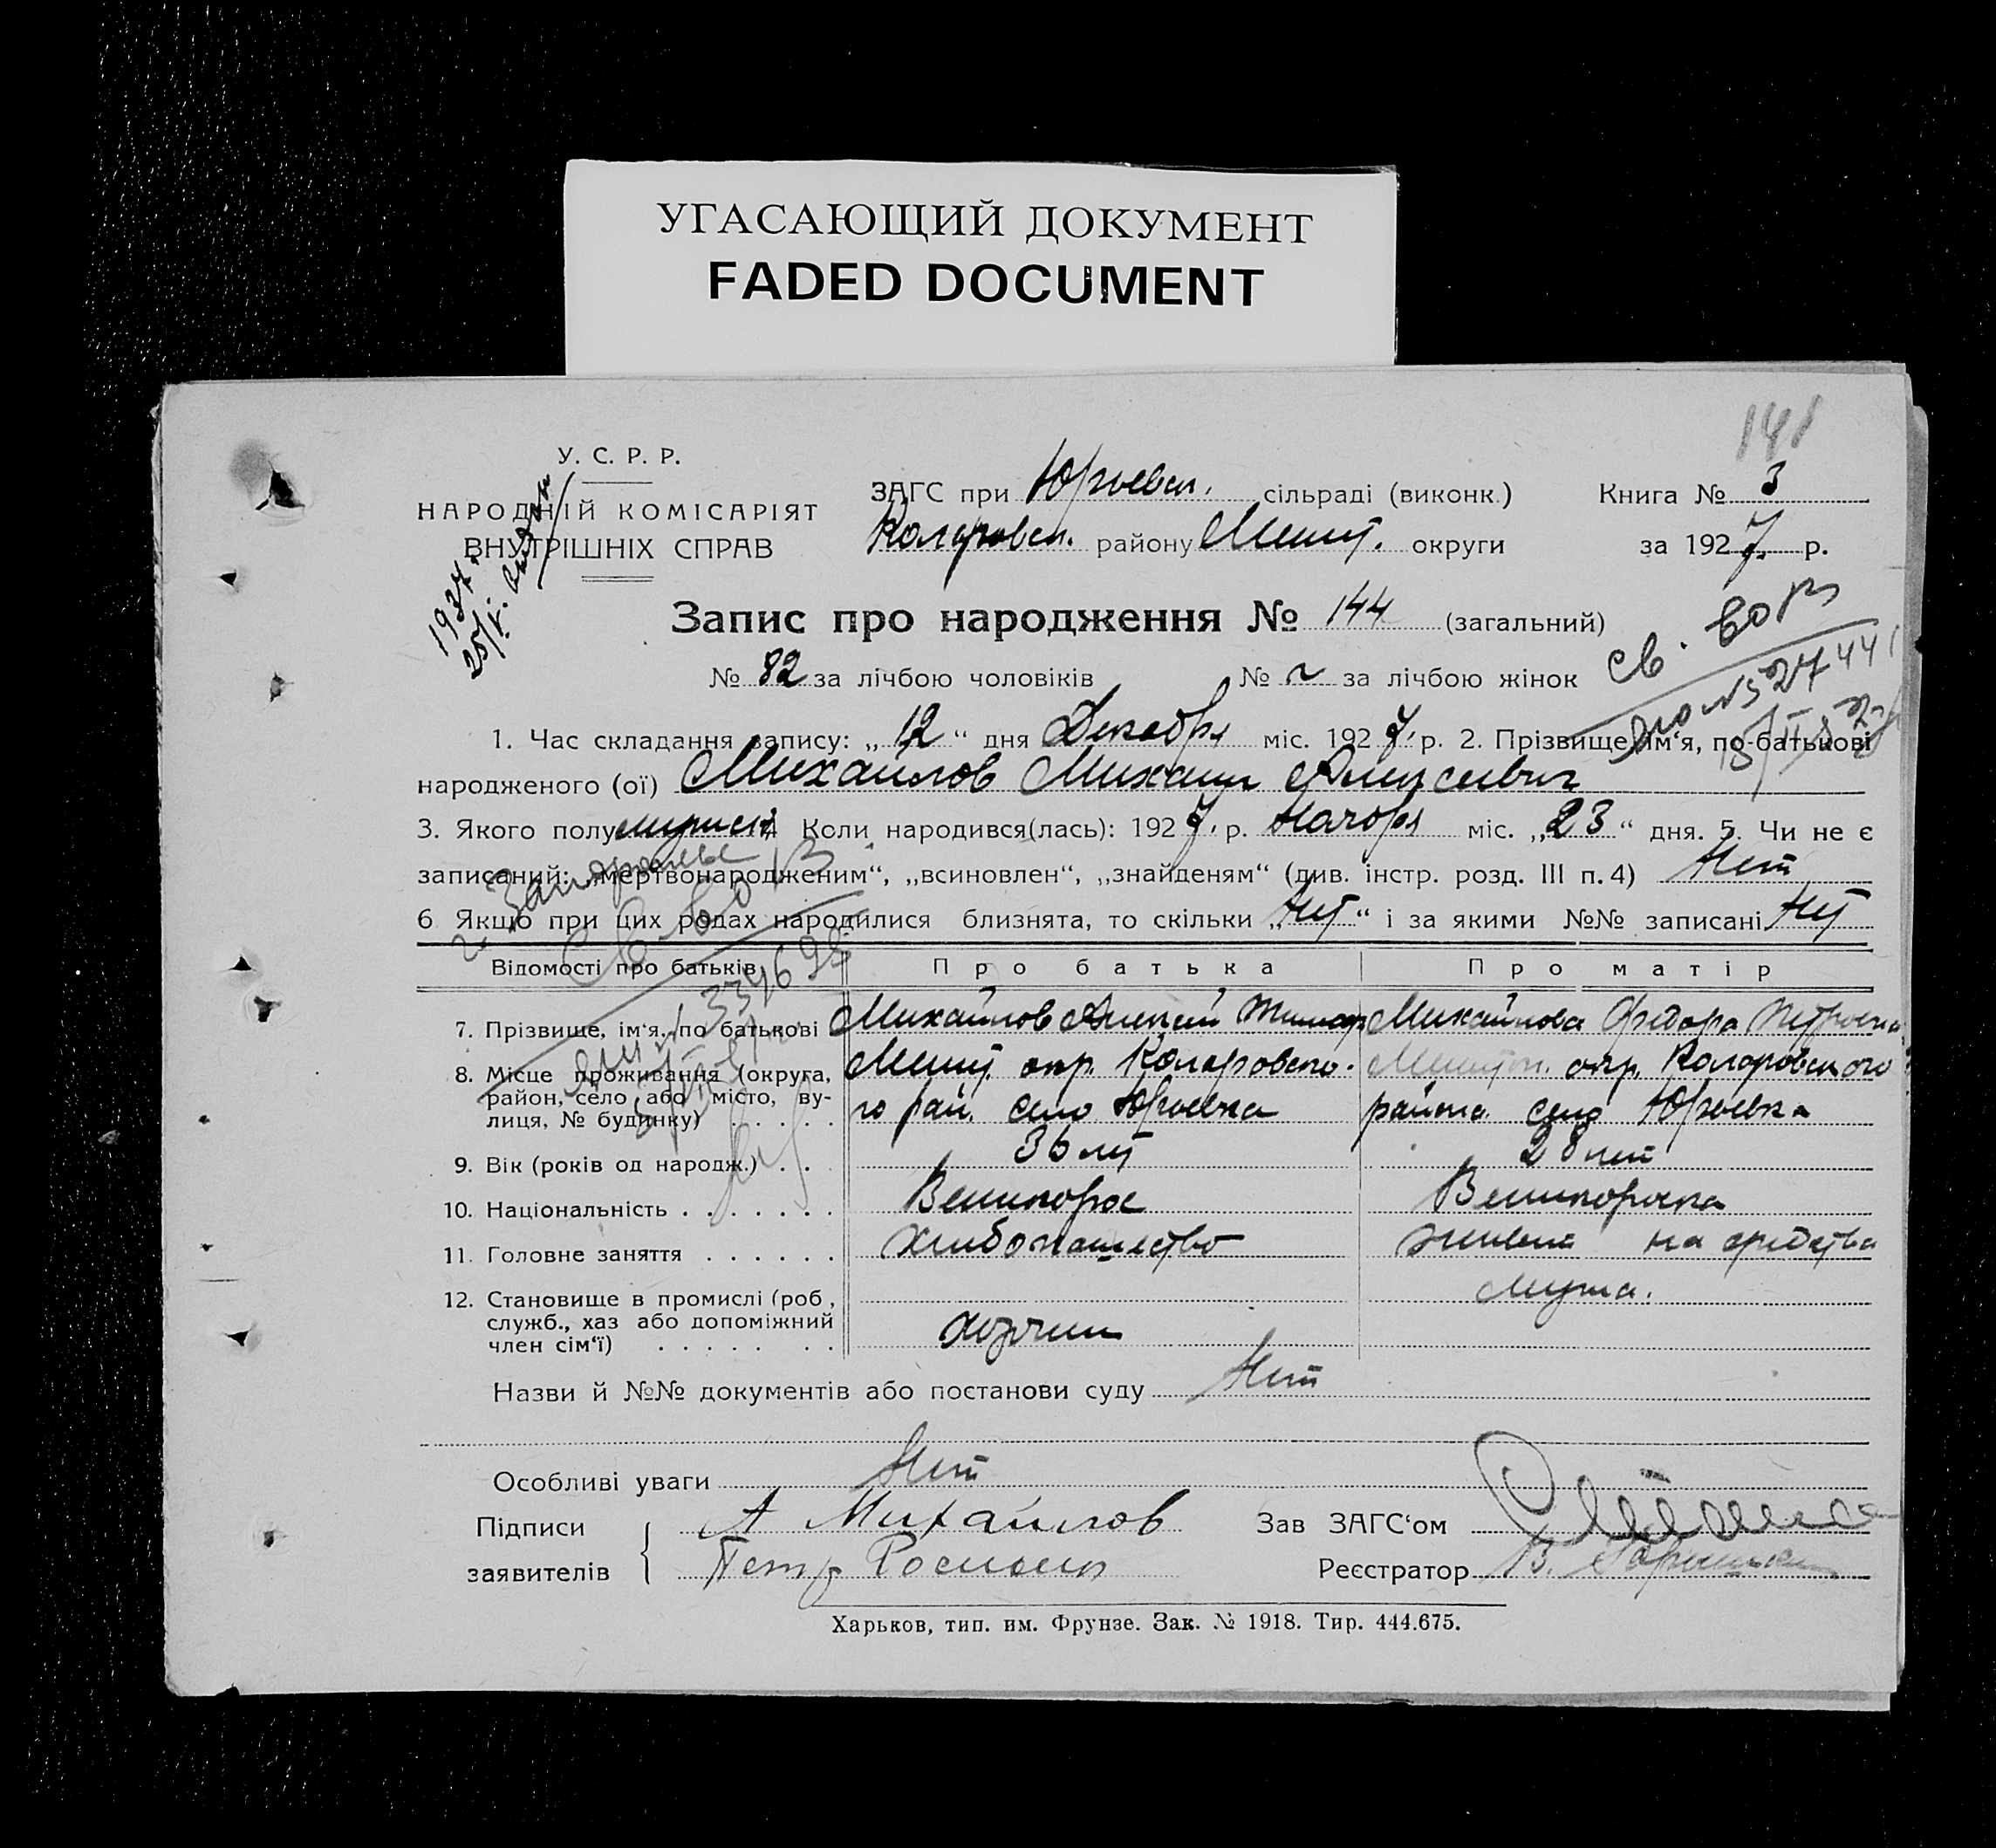 УГАСАЮЩИЙ ДОКУМЕНТ
FADED DOCUMENT
141
У. С. Р. Р.
НАРОДНІЙ КОМІСАРІЯТ
ВНУТРІШНІХ СПРАВ
ЗАГС при Юрьевск. сільраді (виконк.)
Коларовск. району Мелит. округи
Книга № 3
за 1927 р.
1937 г.
Запис про народження № 144 (загальний)
№ 82 за лічбою чоловіків № за лічбою жінок
Св. во
1. Час складання запису: „ 12 “ дня Декабря міс. 1927 р. 2. Прізвище, ім‘я, по-батькові
народженого (ої) Михайлов Михаил Алексеевич
3. Якого полу мужск. 4 Коли народився(лась): 1927 р. Ноября міс. „ 23 “ дня. 5. Чи не є
записаний: „мертвонародженим“, „всиновлен“, „знайденям“ (див. інстр. розд. III п. 4) Нет
6 Якщо при цих родах народилися близнята, то скільки „ Нет “ і за якими №№ записані Нет
г. Запорожье
Св-во
Відомості про батьків
Про батька
Про матір
7. Прізвище, ім‘я, по батькові Михайлов Алексей Михайлова Федора Петровна
8. Місце проживання (округа, район, село або місто, вулиця, № будинку)
Мелит. окр. Коларовско-
го рай. село Юрьевка
окр. Коларовского
района село Юрьевка
9. Вік (років од народж.) 36 лет 28 лет
10. Національність Великорос Великороска
11. Головне заняття Хлебопашество живет на средства
мужа.
12. Становище в промислі (роб, служб., хаз або допоміжний член сім‘ї) хозяин
Назви й №№ документів або постанови суду Нет
Особливі уваги Нет
Підписи
заявителів
А Михайлов
Петр
Зав ЗАГС‘ом
Реєстратор
Харьков, тип. им. Фрунзе. Зак. № 1918. Тир. 444.675.